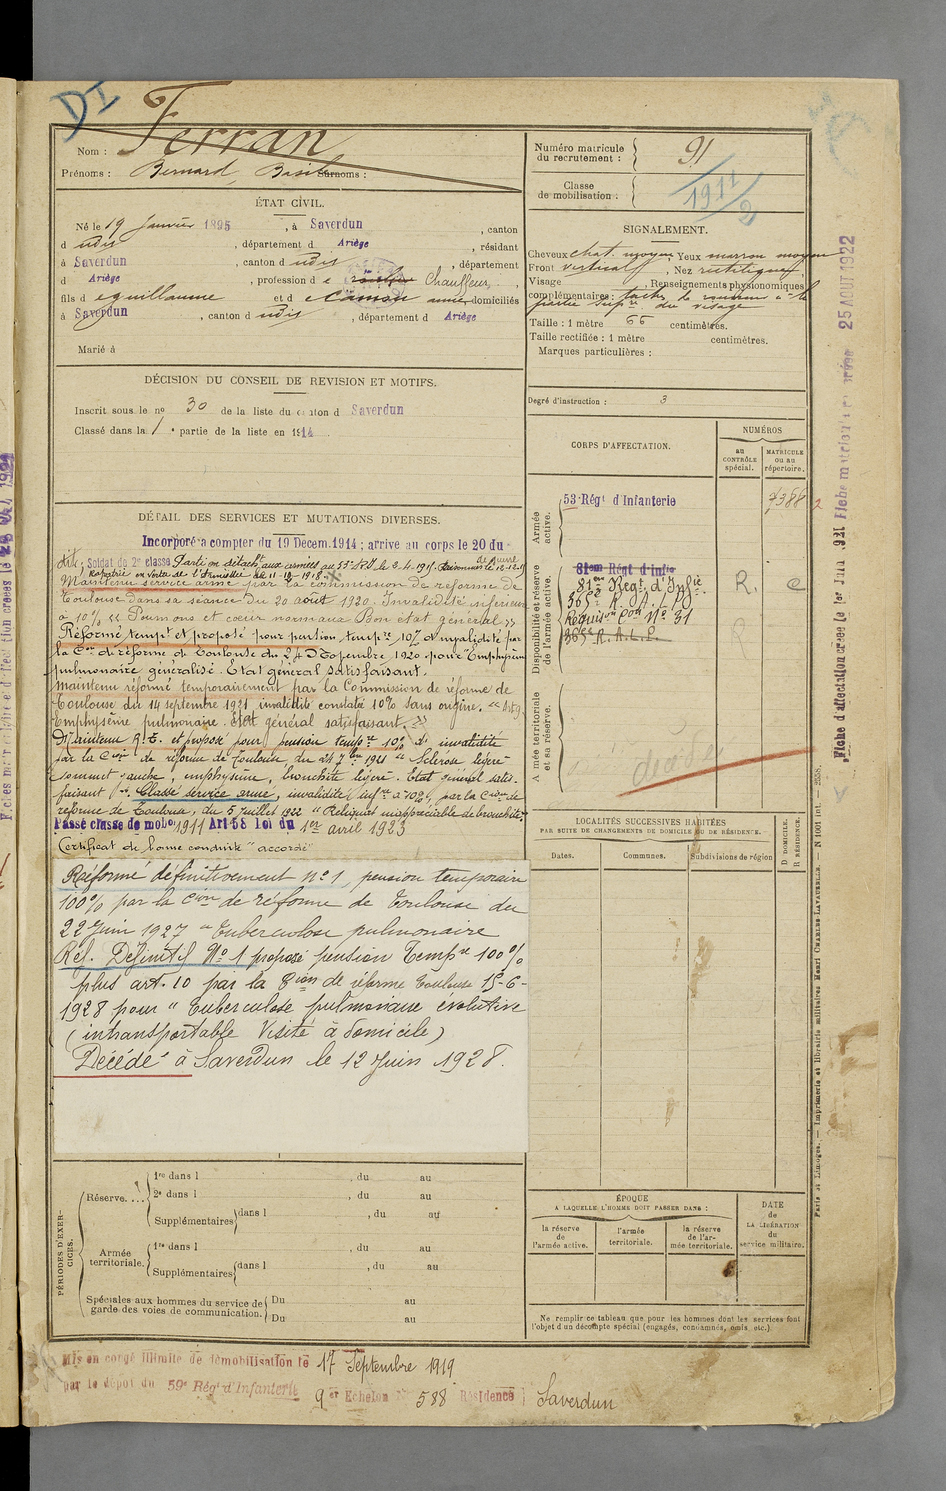 DI
Nom : Ferran
Prénoms : Bernard, Basile Surnoms :
ÉTAT CIVIL.
Né le 19 Janvier 1895, à Saverdun, canton
d udis, département d Ariège, résidant
à Saverdun, canton d udis, département
d Ariège, profession d e Chauffeur,
fils d e guillaume et d e Camou anne, domiciliés
à Saverdun, canton d udis, département d Ariège
Marié à
DÉCISION DU CONSEIL DE REVISION ET MOTIFS.
Inscrit sous le no 30 de la liste du canton d Saverdun
Classé dans la 1e partie de la liste en 1914.
DÉTAIL DES SERVICES ET MUTATIONS DIVERSES.
Incorporé à compter du 19 Décem. 1914; arrivé au corps le 20 du
dit, Soldat de 2e classe
Maintenu service armé par la commission de réforme de
Toulouse dans sa séance du 20 août 1920. Invalidité inférieure
à 10% "Poumons et coeur normaux Bon état général"
Réformé tempre et proposé pour pension tempre 10% d'invalidité par
la Con de réforme de Toulouse du 24 Décembre 1920 pour "Emphysème
pulmonaire généralisé. Etat général satisfaisant.
Maintenu réformé temporairement par la Commission de réforme de
Toulouse du 14 septembre 1921 invalidité constatée 10% sans origine.
Emphysème pulmonaire. Etat général satisfaisant."
Maintenu R.T. et proposé pour pension tempre 10% d'invalidité
par la Con de réforme de Toulouse, du 24 7bre 1921 "Sclérose légère
sommet gauche, emphysème, bronchite légère. Etat général satis-
faisant". Classé service armé, invalidité infre à 10%, par la Con de
réforme de Toulouse, du 5 juillet 1922 "Reliquat inappréciable de bronchite"
Passé classe de mobon 1911 Art 58 loi du 1er avril 1923
Certificat de bonne conduite "accordé"
Réformé définitivement no 1, pension temporaire
100% par la Con de réforme de Toulouse du
22 Juin 1927 "Tuberculose pulmonaire
Réf. Définitif No 1 proposé pension tempre 100%
plus art. 10 par la Con de réforme Toulouse 15-6-
1928 pour "Tuberculose pulmonaire évolutive
(intransportable Visité à domicile)
Décédé à Saverdun le 12 Juin 1928.
PÉRIODES D'EXERCICES.
Réserve....
1re dans l , du au
2e dans l , du au
Supplémentaires dans l , du au
Armée territoriale.
1re dans l , du au
Supplémentaires dans l , du au
Spéciales aux hommes du service de garde des voies de communication.
Du au
Du au
Mis en congé illimité de démobilisation le 17 Septembre 1919
par le dépôt du 59e Régt d'Infanterie
9er Echelon No 588 Résidence Saverdun
Numéro matricule du recrutement : 91
Classe de mobilisation : 1911/2
SIGNALEMENT.
Cheveux chat. moyen Yeux marron moyen
Front vertical, Nez rectiligne
Visage , Renseignements physionomiques
complémentaires : taches de rousseur à la
partie supre du visage
Taille : 1 mètre 66 centimètres.
Taille rectifiée : 1 mètre centimètres.
Marques particulières :
Degré d'instruction : 3
CORPS D'AFFECTATION.
NUMÉROS
au CONTRÔLE spécial.
MATRICULE ou au répertoire.
Armée active.
53e Régt d'Infanterie 7388
Disponibilité et réserve de l'armée active.
81em Régt d'Infie
81e Régt d'Infie R. C
Réquison No 31
Armée territoriale et sa réserve.
décédé
LOCALITÉS SUCCESSIVES HABITÉES
PAR SUITE DE CHANGEMENTS DE DOMICILE OU DE RÉSIDENCE.
Dates.
Communes.
Subdivisions de région
D. DOMICILE. R. RÉSIDENCE.
ÉPOQUE
A LAQUELLE L'HOMME DOIT PASSER DANS :
la réserve de l'armée active.
l'armée territoriale.
la réserve de l'armée territoriale.
DATE de LA LIBÉRATION du service militaire.
Ne remplir ce tableau que pour les hommes dont les services font
l'objet d'un décompte spécial (engagés, condamnés, omis, etc.).
25 AOUT 1922
Paris et Limoges. — Imprimerie et librairie militaires Henri CHARLES-LAVAUZELLE. — N 1001 int. — 2558.